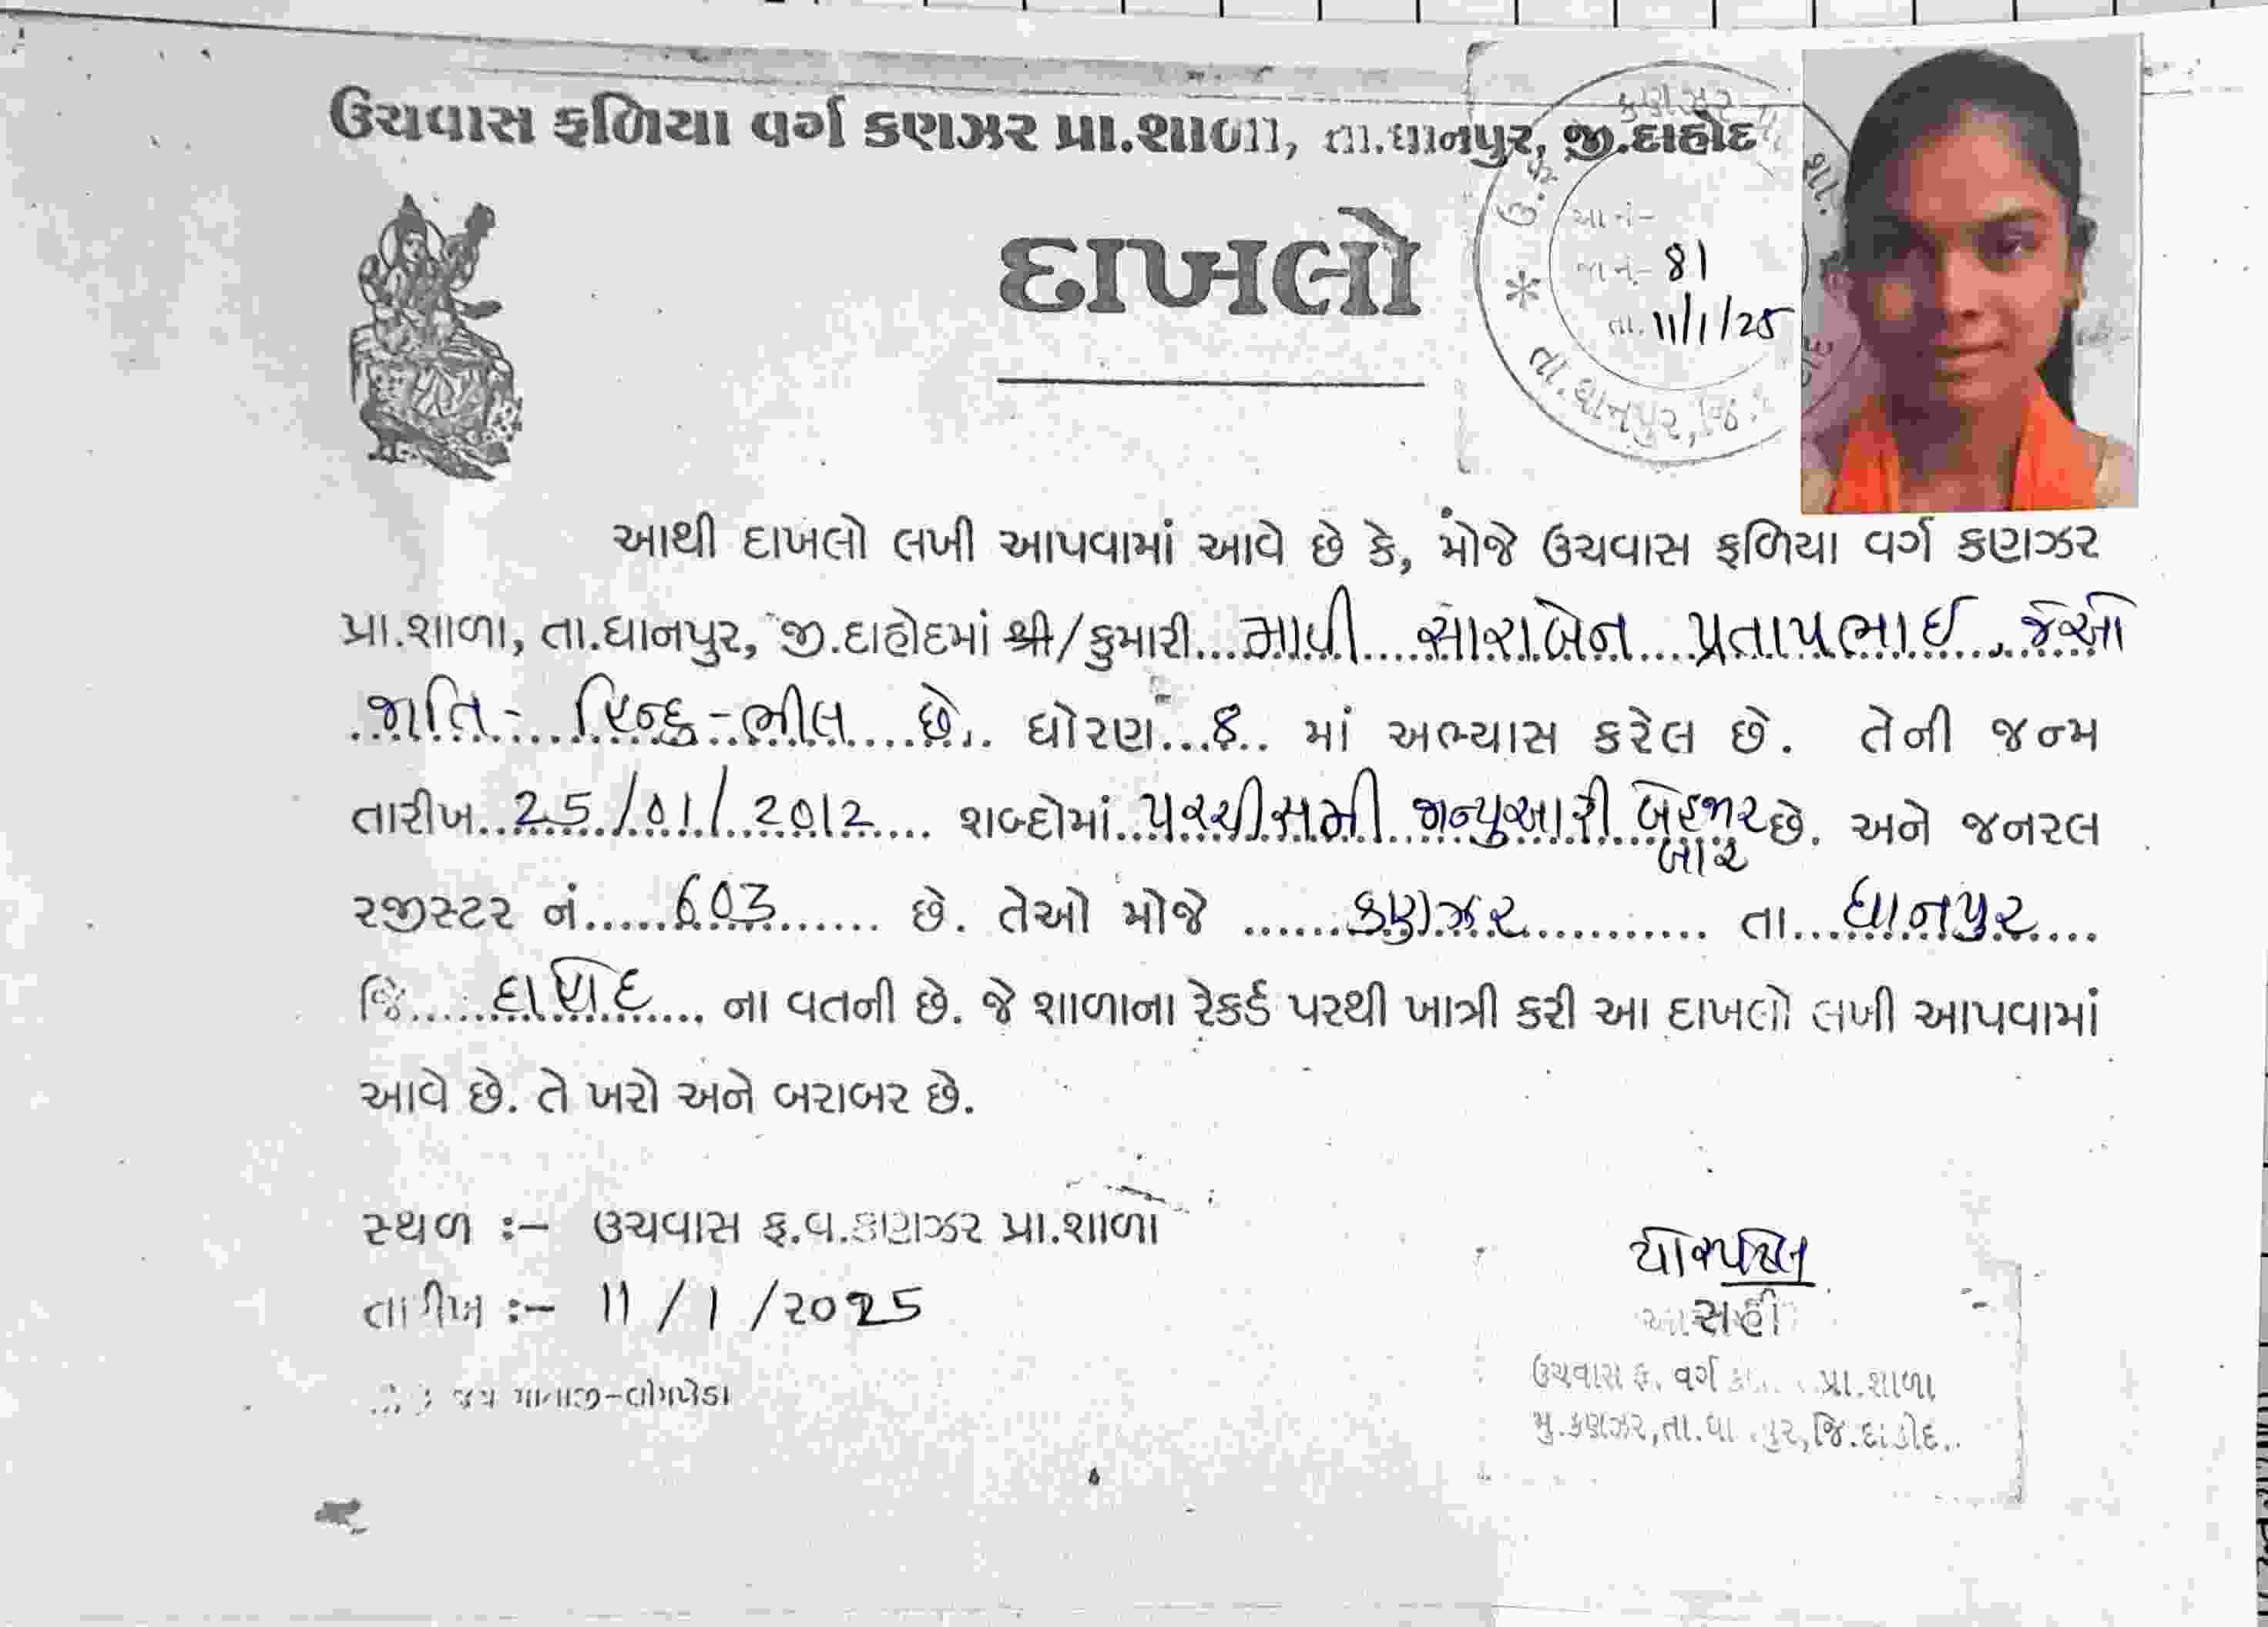 ઉચવાસ ફળિયા વર્ગ કણઝર પ્રા.શાળા, તા.ધાનપુર, જી.દાહોદ
દાખલો
કણઝર
આ નં-
જા નં- 81
તા. 11/1/25
તા.ધાનપુર, જિ.
આથી દાખલો લખી આપવામાં આવે છે કે, મોંજે ઉચવાસ ફળિયા વર્ગ કણઝર
પ્રા.શાળા, તા.ધાનપુર, જી.દાહોદમાં શ્રી/કુમારી...માવી....સારાબેન....પ્રતાપભાઈ..જેઓ
જાતિ-...હિન્દુ-ભીલ....છે... ધોરણ...8.. માં અભ્યાસ કરેલ છે. તેની જન્મ
તારીખ..25/01/2012.... શબ્દોમાં..પચ્ચીસમી..જાન્યુઆરી બેહજાર છે. અને જનરલ
બાર
રજીસ્ટર નં.....603....... છે. તેઓ મોજે ......કણઝર........... તા...ધાનપુર...
જિ.....દાહોદ.... ના વતની છે. જે શાળાના રેકર્ડ પરથી ખાત્રી કરી આ દાખલો લખી આપવામાં
આવે છે. તે ખરો અને બરાબર છે.
સ્થળ :– ઉચવાસ ફ.વ.કણઝર પ્રા.શાળા
તારીખ :– 11 / 1 /૨૦25
સહી
ઉચવાસ ફ. વર્ગ પ્રા.શાળા
મુ.કણઝર,તા.ધાનપુર,જિ.દાહોદ.